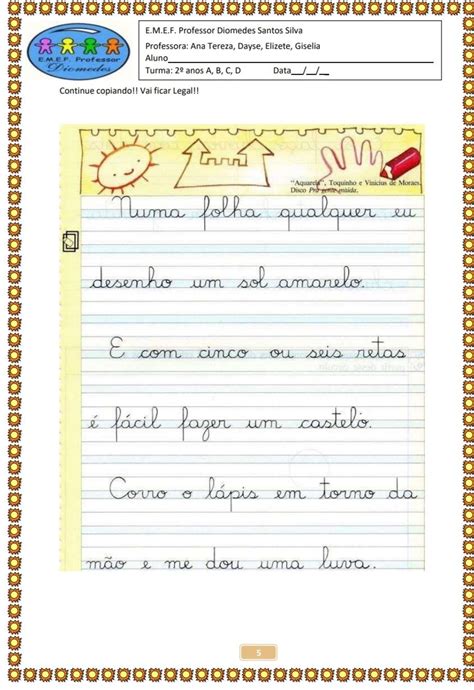 E.M.E.F. Professor Diomedes Santos Silva
Professora: Ana Tereza, Dayse, Elizete, Giselia
Aluno
Turma: 2º anos A, B, C, D Data__/__/__
E.M.E.F. Professor
Diomedes
Continue copiando!! Vai ficar Legal!!
"Aquarela", Toquinho e Vinicius de Moraes.
Disco
Numa folha qualquer eu
desenho um sol amarelo.
E com cinco ou seis retas
é fácil fazer um castelo.
Corro o lápis em torno da
mão e me dou uma luva.
5